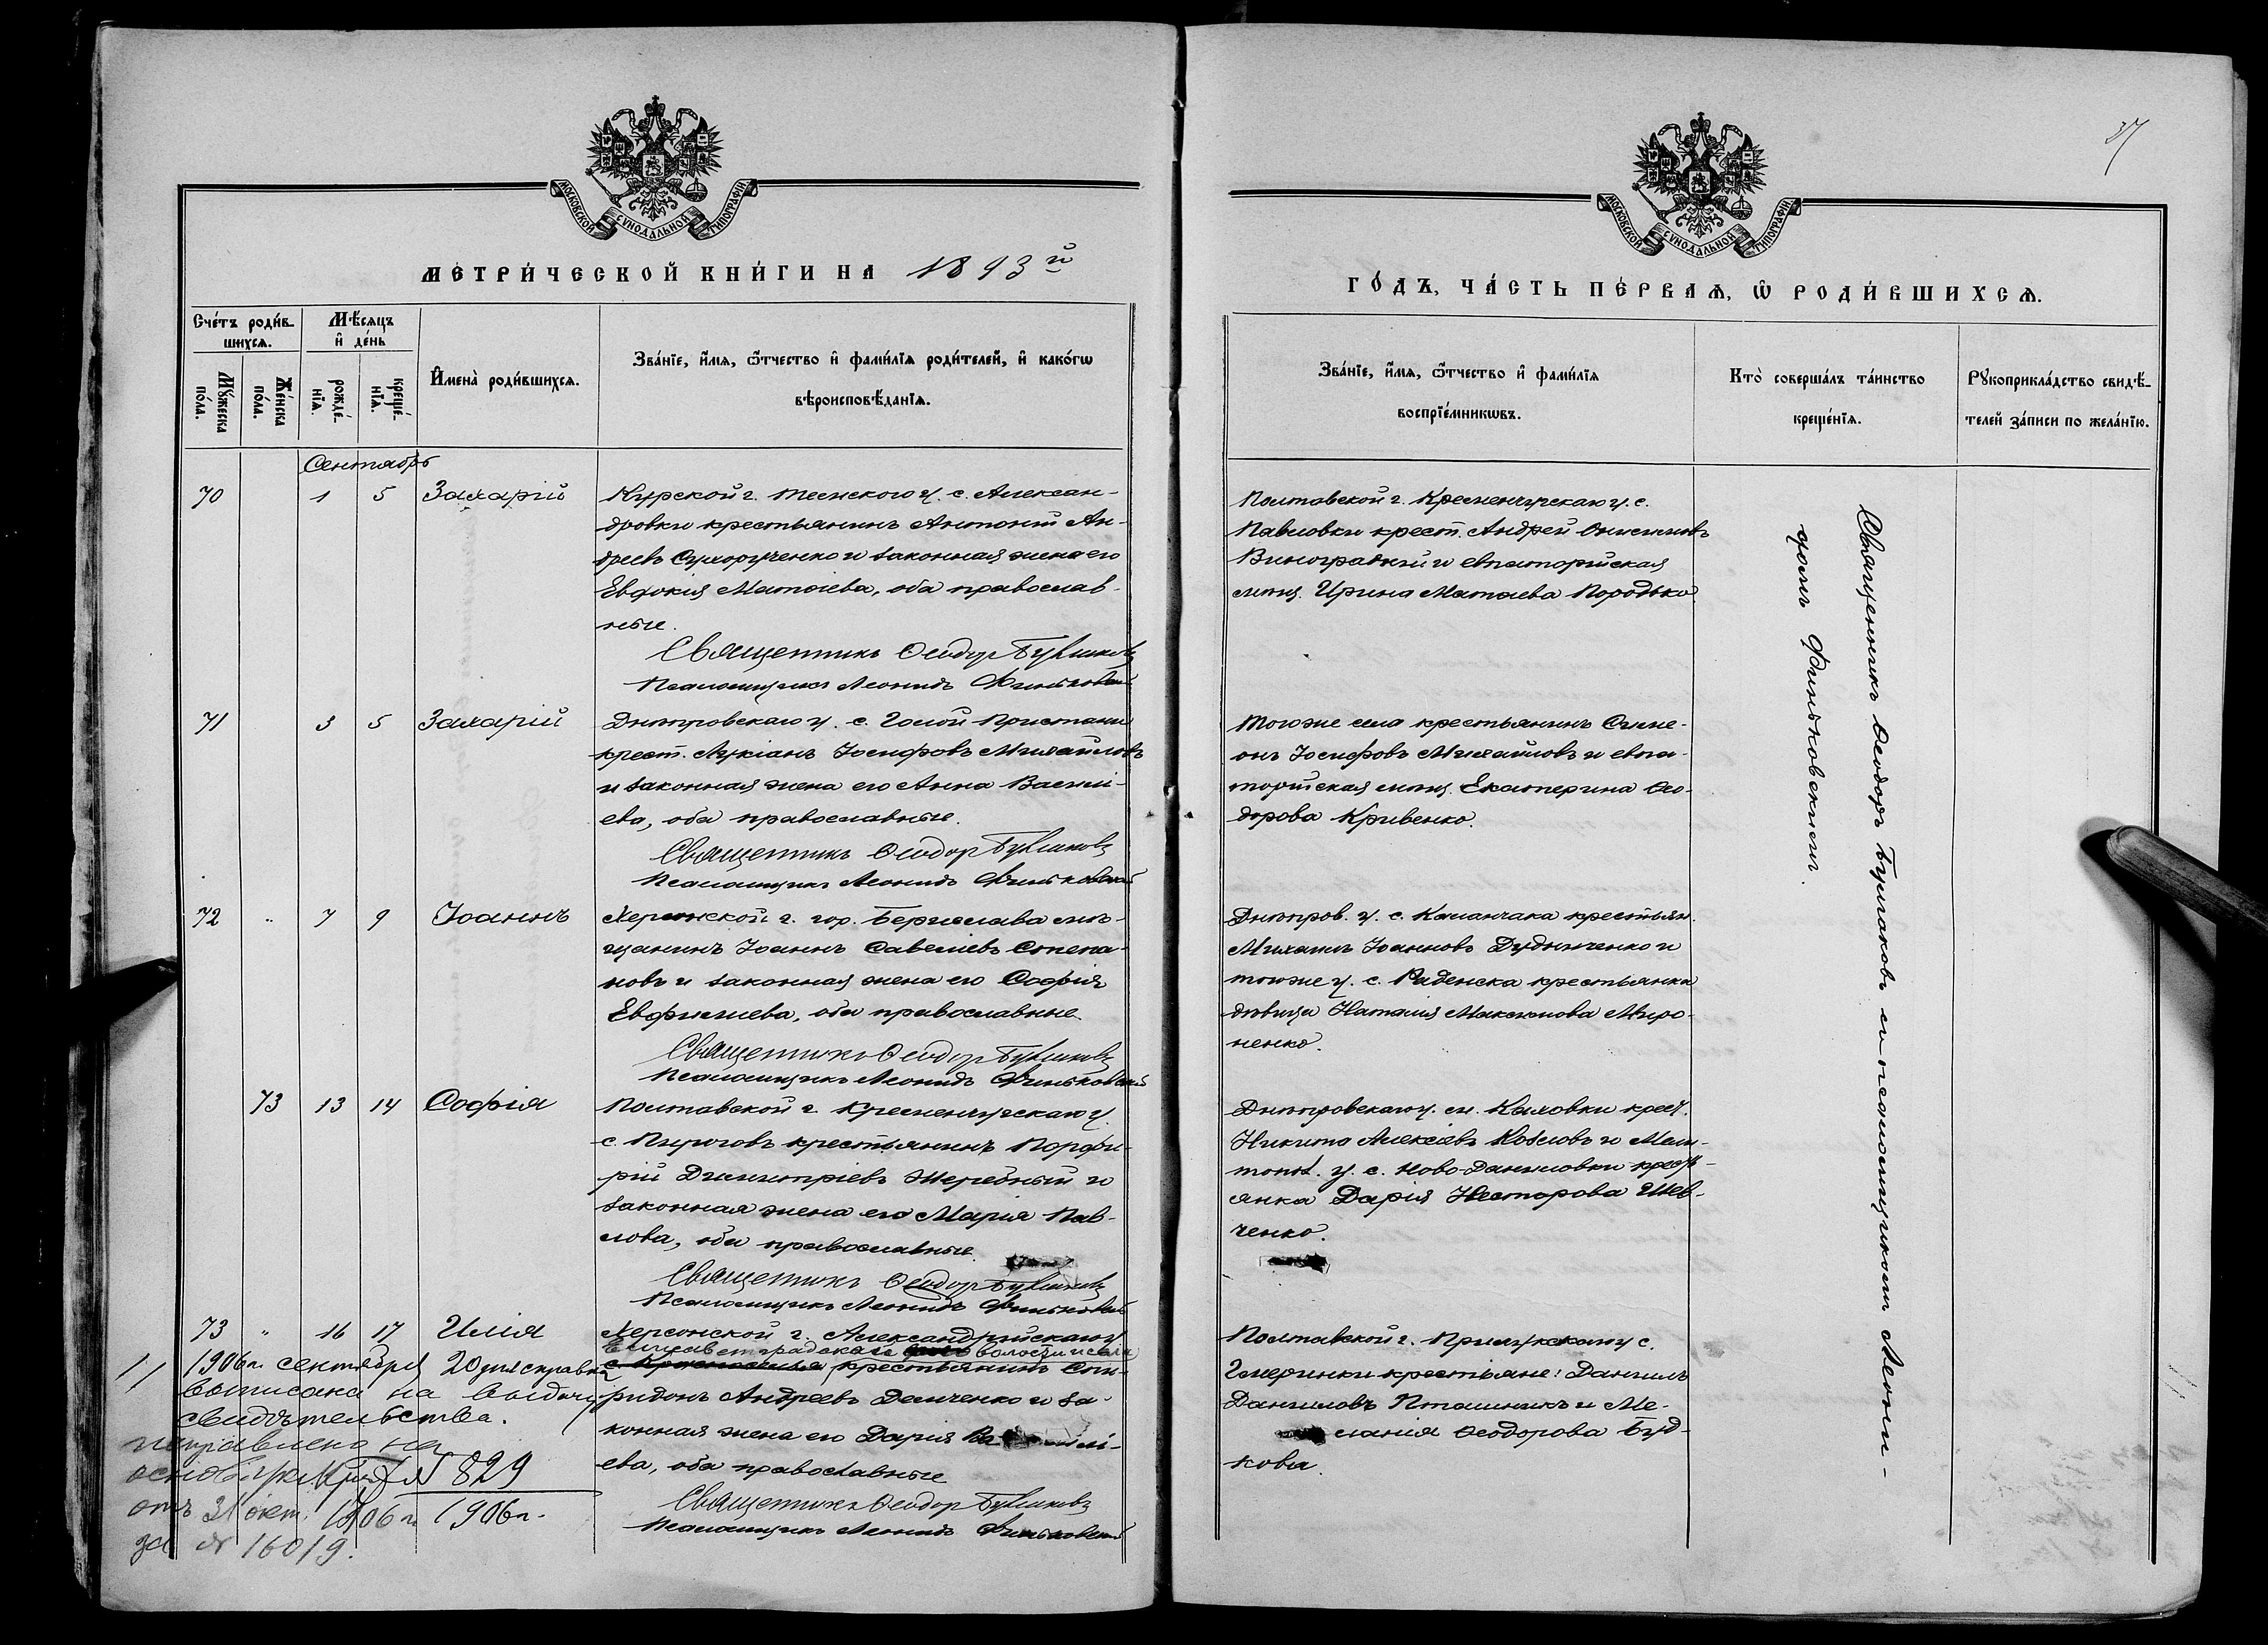 МОСКОВСКОЙ СѴНОДАЛЬНОЙ ТИПОГРАФІИ
МЕТРИ́ЧЕСКОЙ КНИ́ГИ НА 1893й
Сче́тъ роди́в-
шихсѧ.
Мѣ́сѧцъ
и҆ де́нь
Мꙋ́жеска
по́ла.
Же́нска
по́ла.
рожде́-
нїѧ.
креще́-
нїѧ.
И҆мена̀ роди́вшихсѧ.
Зва́нїе, и҆́мѧ, ѻ҆́тчество и҆ фами́лїѧ роди́телей, и҆ како́гѡ
вѣроисповѣ́данїѧ.
Сентябрь
70 1 5 Захарій
Курской г. Тимскаго у. с. Алексан-
дровки крестьянинъ Антоній Ан-
дреевъ Сухорученко и законная жена его
Евдокія Матѳіева, оба православ-
ные.
Священникъ Ѳеодоръ Булгаковъ
Псаломщикъ Леонидъ Финьковскій
71 3 5 Захарій
Днѣпровскаго у. с. Голой Пристани
крест. Лукіанъ Іосифовъ Михайловъ
и законная жена его Анна Василі-
ева, оба православные.
Священникъ Ѳеодоръ Булгаковъ
Псаломщикъ Леонидъ Финьковскій
72 " 7 9 Іоаннъ
Херсонской г. гор. Берислава мѣ-
щанинъ Іоаннъ Савеліевъ Степа-
новъ и законная жена его Софія
Евфиміева, оба православные.
Священникъ Ѳеодоръ Булгаковъ
Псаломщикъ Леонидъ Финьковскій
73 13 14 Софія
Полтавской г. Кременчугскаго у.
с. Пироговъ крестьянинъ Порфи-
рій Димитріевъ Жеребный и
законная жена его Марія Пав-
лова, оба православные.
Священникъ Ѳеодоръ Булгаковъ
Псаломщикъ Леонидъ Финьковскій
73 " 16 17 Илія
Херсонской г. Александрійскаго у.
Елисаветградской волости и села
крестьянинъ Спи-
ридонъ Андреевъ Демченко и за-
конная жена его Дарія Ва силі-
ева, оба православные
Священникъ Ѳеодоръ Булгаковъ
Псаломщикъ Леонидъ Финьковскій
1906 г. сентября 20 дня справка
выписана на выдачу
свидѣтельства.
исправлено на
№ 829
отъ 31 окт. 1906 г. 1906 г.
за № 16019.
37
МОСКОВСКОЙ СѴНОДАЛЬНОЙ ТИПОГРАФІИ
ГО́ДЪ, ЧА́СТЬ ПЕ́РВАѦ, Ѽ РОДИ́ВШИХСѦ.
Зва́нїе, и҆́мѧ, ѻ҆́тчество и҆ фами́лїѧ
воспрїе́мникѡвъ.
Кто̀ соверша́лъ та́инство
креще́нїѧ.
Рꙋкоприкла́дство свидѣ́-
телей за́писи по жела́нїю.
Полтавской г. Кременчугскаго у. с.
Павловки крест. Андрей Онисимовъ
Виноградній и евпаторійская
мѣщ. Ирина Матѳіева Породько
Того же села крестьянинъ Симе-
онъ Іосифовъ Михайловъ и евпа-
торійская мѣщ. Екатерина Ѳео-
дорова Кривенко.
Днѣпров. у. с. Каланчака крестьян.
Михаилъ Іоанновъ Дудниченко и
того же у. с. Раденска крестьянка
дѣвица Наталія Максимова Миро-
ненко.
Днѣпровскаго у. м. Каховки крест.
Никита Алексіевъ Козловъ и Мели-
топ. у. с. Ново-Даниловки крест-
янка Дарія Несторова Шев-
ченко.
Полтавской г. Прилукскаго у. с.
крестьяне: Даніилъ
Данииловъ Пташникъ и Ме-
ланія Ѳеодорова Буд-
кова.
Священникъ Ѳеодоръ Булгаковъ съ псаломщикомъ Леони-
домъ Финьковскимъ.